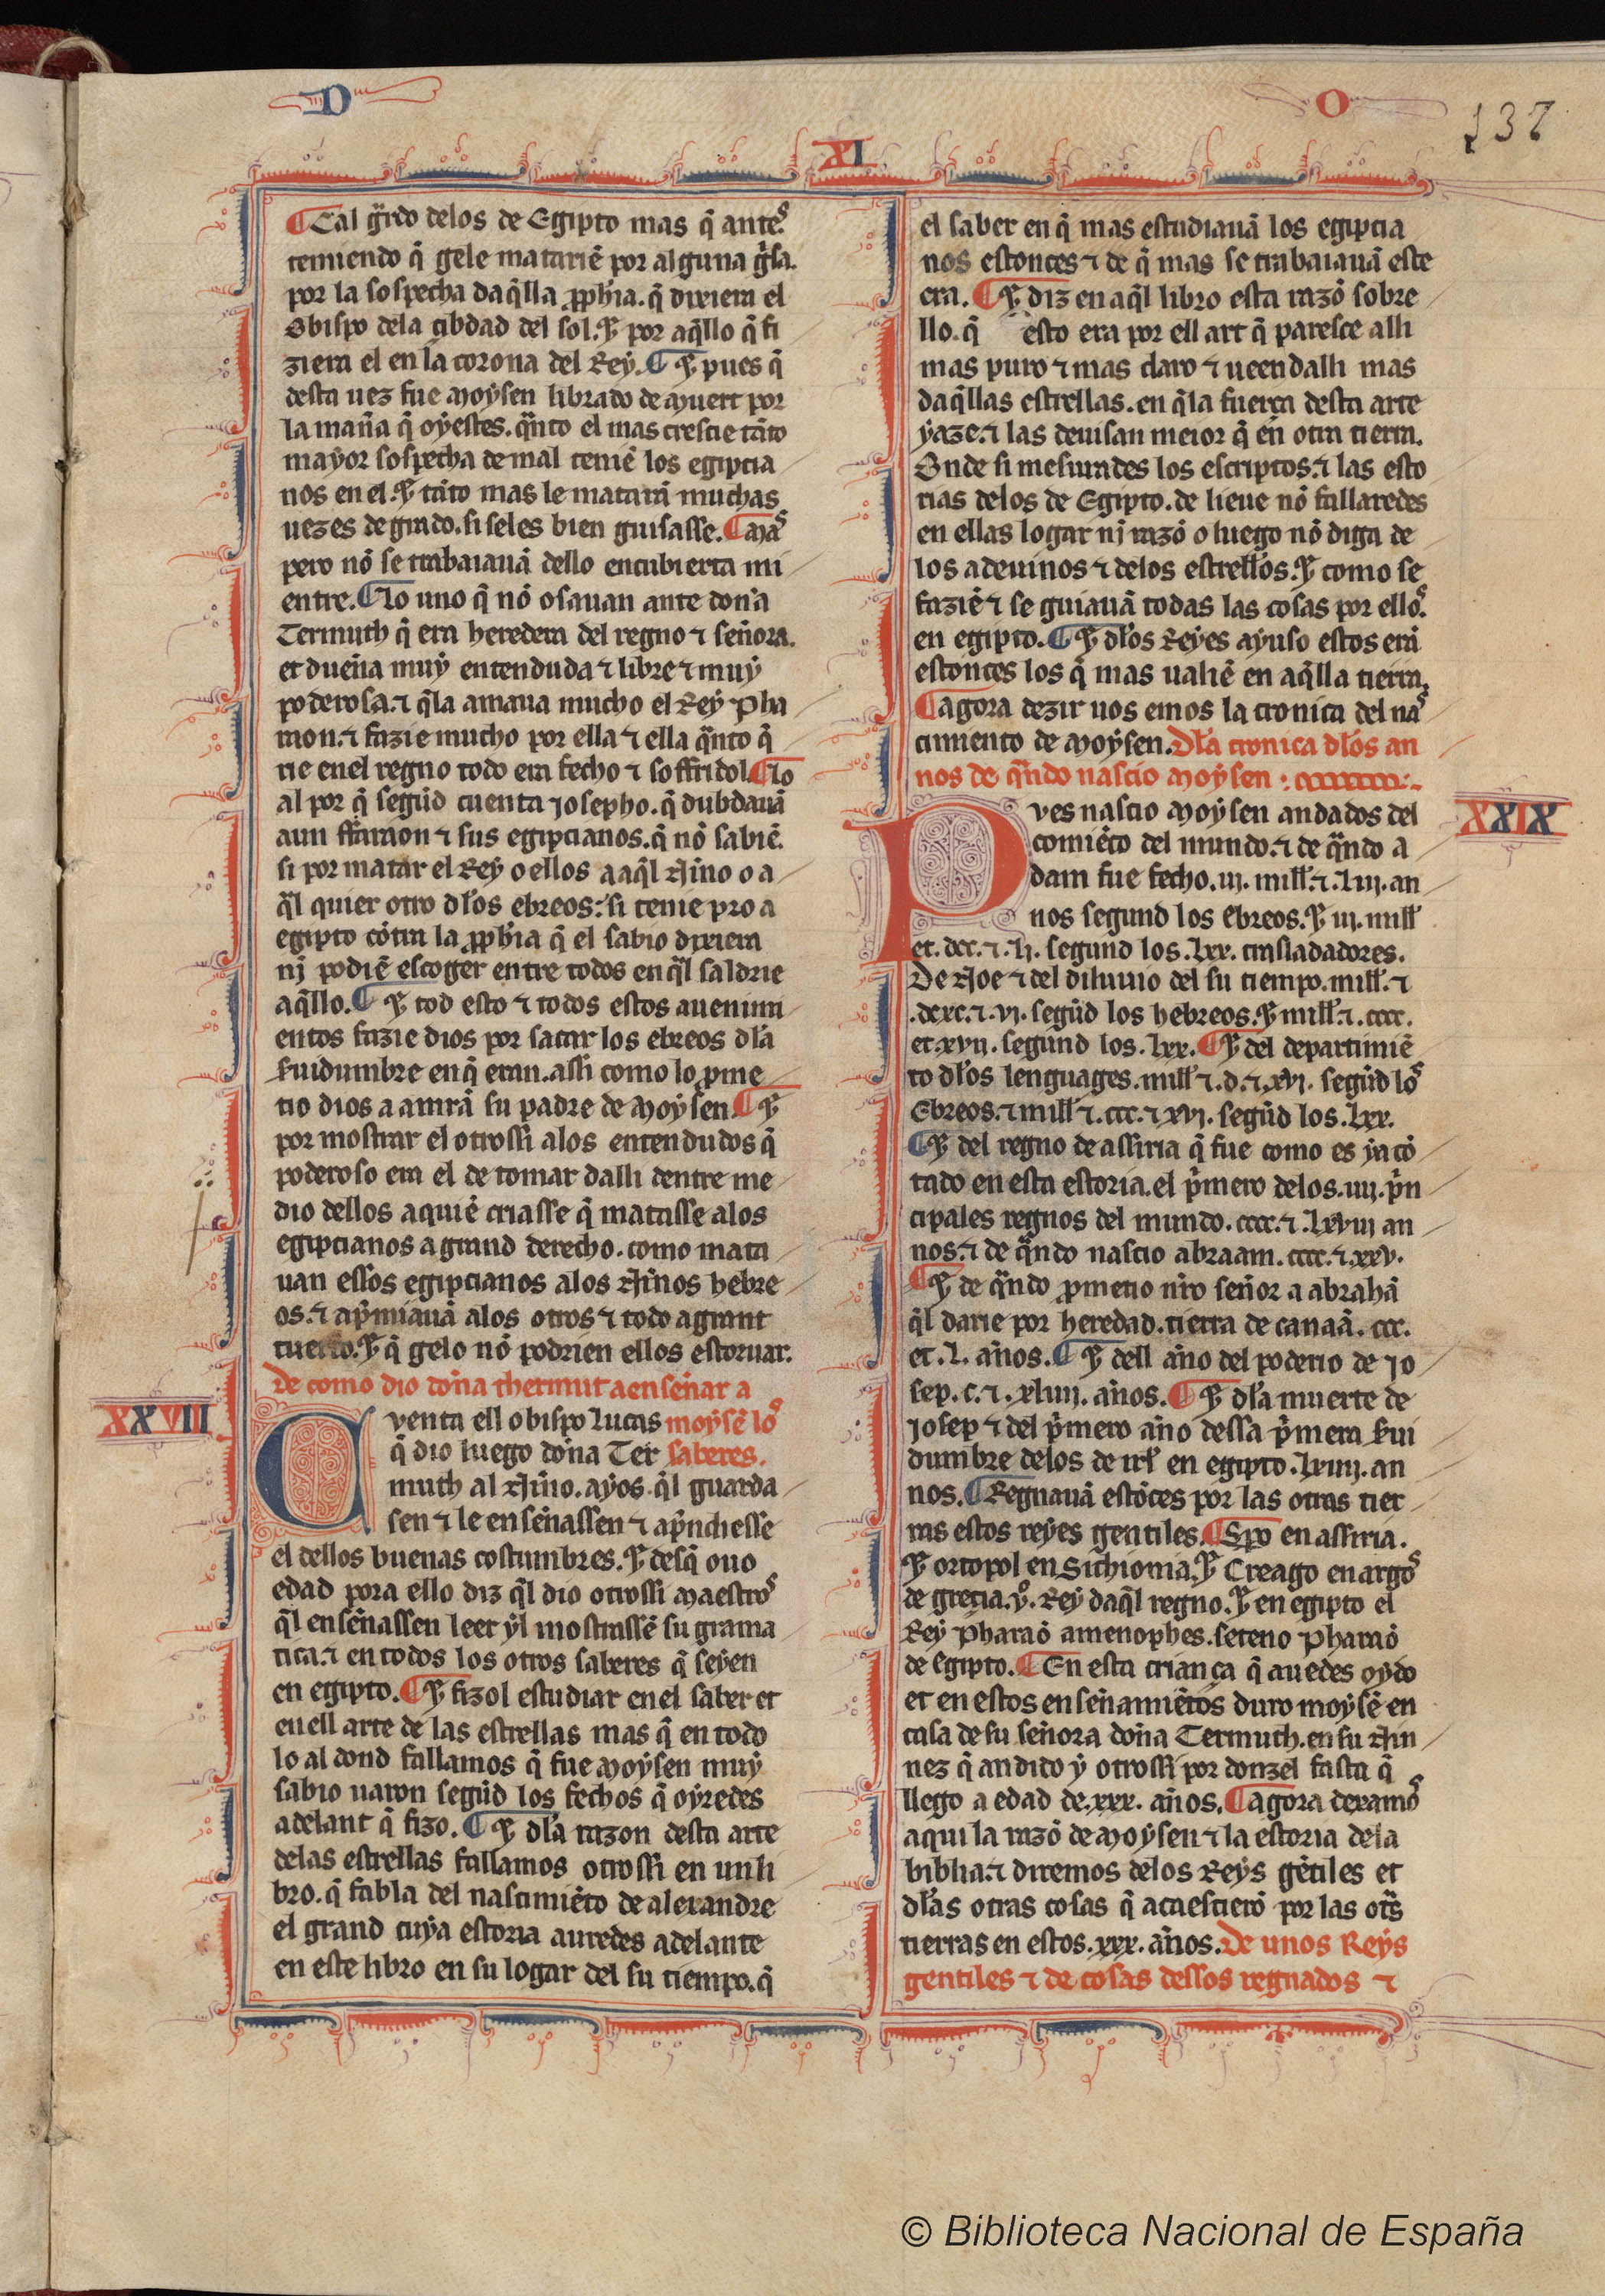 D
O
XI
137
¶Tal grado delos de Egipto mas q̃ ante^s.
temiendo q̃ gele matariẽ por alguna gͥsa.
por la sospecha daq̃lla ꝓpħia. q̃ dixiera el
Obispo dela cibdad del sol. Et por aq̃llo q̃ fi
ziera el en la corona del Rey. ¶ Et pues q̃
desta uez fue moysen librado de muert por
la mañа q̃ oyestes. q̃nto el mas crescie tãto
mayor sospecha de mal teniẽ los egipcia
nos en el. Et tãto mas le matarã muchas
uezes de grado. si seles bien guisasse. ¶ma^s
pero nõ se trabaiauã dello encubierta mi
entre. ¶lo uno q̃ nõ osauan ante doña
Termuth q̃ era heredera del regno ⁊ señora.
et dueña muy entenduda ⁊ libre ⁊ muy
poderosa. ⁊ q̃la amaua mucho el Rey pha
raon. ⁊ fazie mucho por ella ⁊ ella q̃nto q̃
rie enel regno todo era fecho ⁊ soffridol. ¶lo
al por q̃ segũd cuenta josepho. q̃ dubdauã
aun ffaraon ⁊ sus egipcianos. q̃ nõ sabiẽ.
si por matar el Rey o ellos a aq̃l niño o a
q̃l quier otro dl̃os ebreos: si tenie pro a
egipto cõtra la ꝓpħia q̃ el sabio dixiera
nj podiẽ escoger entre todos en q̃l saldrie
aq̃llo. ¶ Et tod esto ⁊ todos estos auenimi
entos fazie dios por sacar los ebreos dl̃a
ẜuidumbre en q̃ eran. assi como lo ꝓme
tio dios a amrã su padre de moysen. ¶ Et
por mostrar el otrossi alos entendudos q̃
poderoso era el de tomar dalli dentre me
dio dellos aquiẽ criasse q̃ matasse alos
egipcianos a grand derecho. como mata
uan essos egipcianos alos niños hebre
os. ⁊ apͥmiauã alos otros ⁊ todo a grant
tuerto. Et q̃ gelo nõ podrien ellos estoruar.
de como dio doña thermut a enseñar a
XXVIII
Cuenta ell obispo lucas moysẽ lo^s
q̃ dio luego doña Ter saberes.
muth al niño. ayos. q̃l guarda
sen ⁊ le enseñassen ⁊ apͥndiesse
el dellos buenas costumbres. Et desq̃ ouo
edad pora ello diz q̃l dio otrossi maestro^s
q̃l enseñassen leer yl mostrassẽ su grama
tica. ⁊ en todos los otros saberes q̃ seyen
en egipto. ¶ Et fizol estudiar en el saber et
en ell arte de las estrellas mas q̃ en todo
lo al dond fallamos q̃ fue moysen muy
sabio uaron segũd los fechos q̃ oyredes
adelant q̃ fizo. ¶ Et dl̃a razon desta arte
delas estrellas fallamos otrossi en un li
bro. q̃ fabla del nascimiẽto de alexandre
el grand cuya estoria auredes adelante
en este libro en su logar del su tiempo. q̃
el saber en q̃ mas estudiauã los egipcia
nos estonces ⁊ de q̃ mas se trabaiauã este
era. ¶ Et diz en aq̃l libro esta razõ sobre
llo. q̃ esto era por ell art q̃ paresce alli
mas puro ⁊ mas claro ⁊ ueen dalli mas
daq̃llas estrellas. en q̃ la fuerça desta arte
yaze. ⁊ las deuisan meior q̃ en otra tierra.
Onde si mesurades los escriptos. ⁊ las esto
rias delos de Egipto. de lieue nõ fallaredes
en ellas logar nj razõ o luego nõ diga de
los adeuinos ⁊ delos estrelleros. Et como se
faziẽ ⁊ se guiauã todas las cosas por ello^s.
en egipto. ¶ Et dl̃os Reyes ayuso estos erã
estonces los q̃ mas ualiẽ en aq̃lla tierra.
¶agora dezir uos emos la cronica del na^s
cimiento de moysen. Dl̃a cronica dl̃os an
nos de q̃ndo nascio moysen :
XXIX
Pves nascio moysen andados del
comiẽço del mundo. ⁊ de q̃ndo a
dam fue fecho. iij. mill. ⁊. liij. an
nos segund los Ebreos. Et iij. mill
et. dcc. ⁊. lj. segund los. lxx. trasladadores.
De Noe ⁊ del diluuio del su tiempo. mill. ⁊
.dcxc. ⁊. vj. segũd los hebreos. Et mill. ⁊. cccc.
et. xvij. segund los. lxx. ¶ Et del departimiẽ
to dl̃os lenguages. mill ⁊. d. ⁊. xvj. segũd lo^s
Ebreos. ⁊ mill ⁊. ccc. ⁊ xvj. segũd los. lxx.
¶ Et del regno de assiria q̃ fue como es ya cõ
tado en esta estoria. el pͥmero delos. iiij. pͥn
cipales regnos del mundo. cccc. ⁊. lxviij an
nos. ⁊ de q̃ndo nascio abraam. cccc. ⁊. xxv.
¶ Et de q̃ndo ꝓmetio nr̃o señor a abrahã
q̃l darie por heredad. tierra de canaã. ccc.
et. l. años. ¶ Et dell año del poderio de jo
sep. c. ⁊. xliiij. años. ¶ Et dl̃a muerte de
josep ⁊ del pͥmero año dessa pͥmera ẜui
dumbre delos de irl̃ en egipto. lxiiij. an
nos. ¶Regnauã estõces por las otras tier
ras estos reyes gentiles. ¶Spo en assiria.
Et ortopol en Sichioma. Et Creago en argo^s
de grecia. vͦ. Rey daq̃l regno. Et en egipto el
Rey pharaõ amenophes. seteno pharaõ
de egipto. ¶En esta criança q̃ auedes oydo
et en estos enseñamiẽtos duro moysẽ en
casa de su señora doña Termuth. en su nin
nez q̃ andido y otrossi por donzel fasta q̃
llego a edad de. xxx. años. ¶agora dexamo^s
aqui la razõ de moysen ⁊ la estoria dela
biblia. ⁊ diremos delos Reys gẽtiles et
dl̃as otras cosas q̃ acaescierõ por las otr̃s
tierras en estos. xxx. años. De unos Reys
gentiles ⁊ de cosas dessos regnados ⁊
© Biblioteca Nacional de España